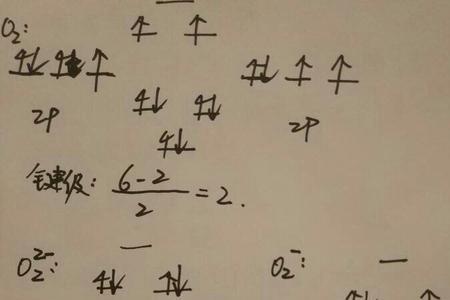 O₂:
↑ ↑
↑↓ ↑↓ ↑ ↑↓ ↑ ↑
↑↓ ↑↓
2P 2P
↑↓
键级: (6-2)/2 = 2.
O₂²⁻: O₂⁻:
↑↓ ↑↓ ↑↓ ↑